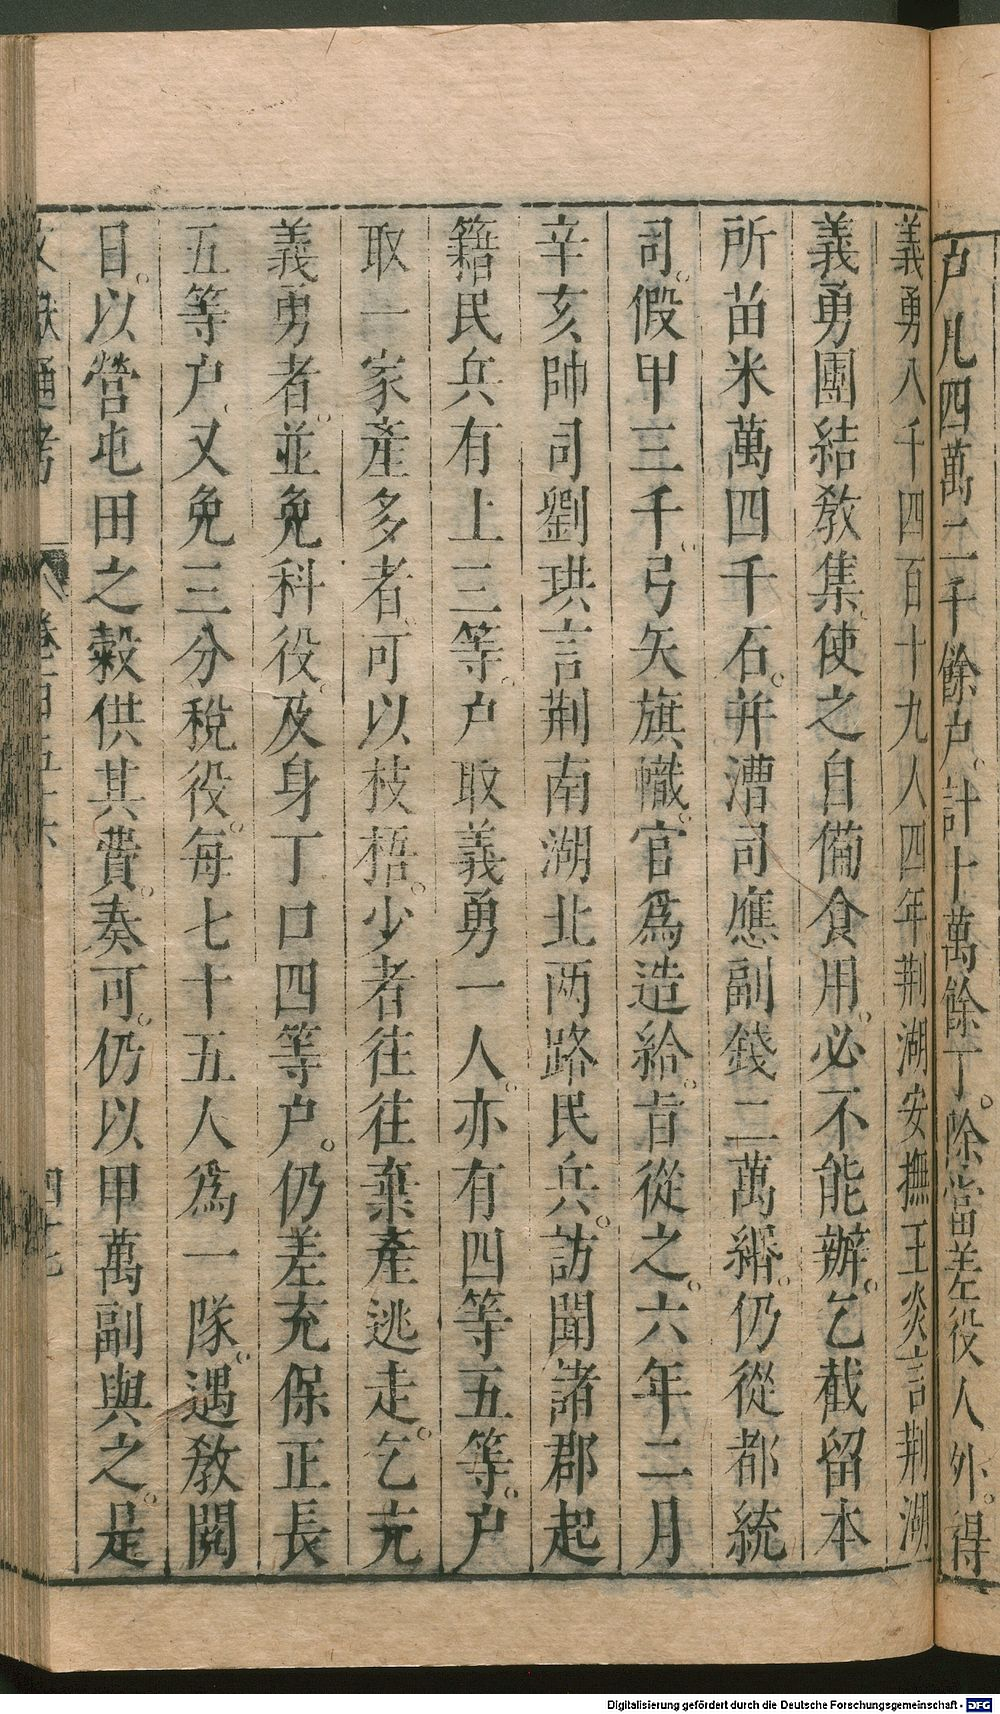 户凡四萬二千餘户計十萬餘丁除當差役人外得
義勇八千四百十九人四年荆湖安撫王炎言荆湖
義勇團結敎集使之自備食用必不能辦乞截留本
所苗米萬四千石并漕司應副錢二萬緡仍從都統
司假甲三千弓矢旗幟官爲造給旨從之六年二月
辛亥帥司劉珙言荆南湖北两路民兵訪聞諸郡起
籍民兵有上三等户取義勇一人亦有四等五等户
取一家產多者可以枝梧少者往往棄產逃走乞充
義勇者並免科役及身丁口四等户仍差充保正長
五等户又免三分稅役每七十五人爲一隊遇敎閱
目以營屯田之穀供其費奏可仍以甲萬副與之是
文獻通考 卷一百五十六 四十七
Digitalisierung gefördert durch die Deutsche Forschungsgemeinschaft - DFG